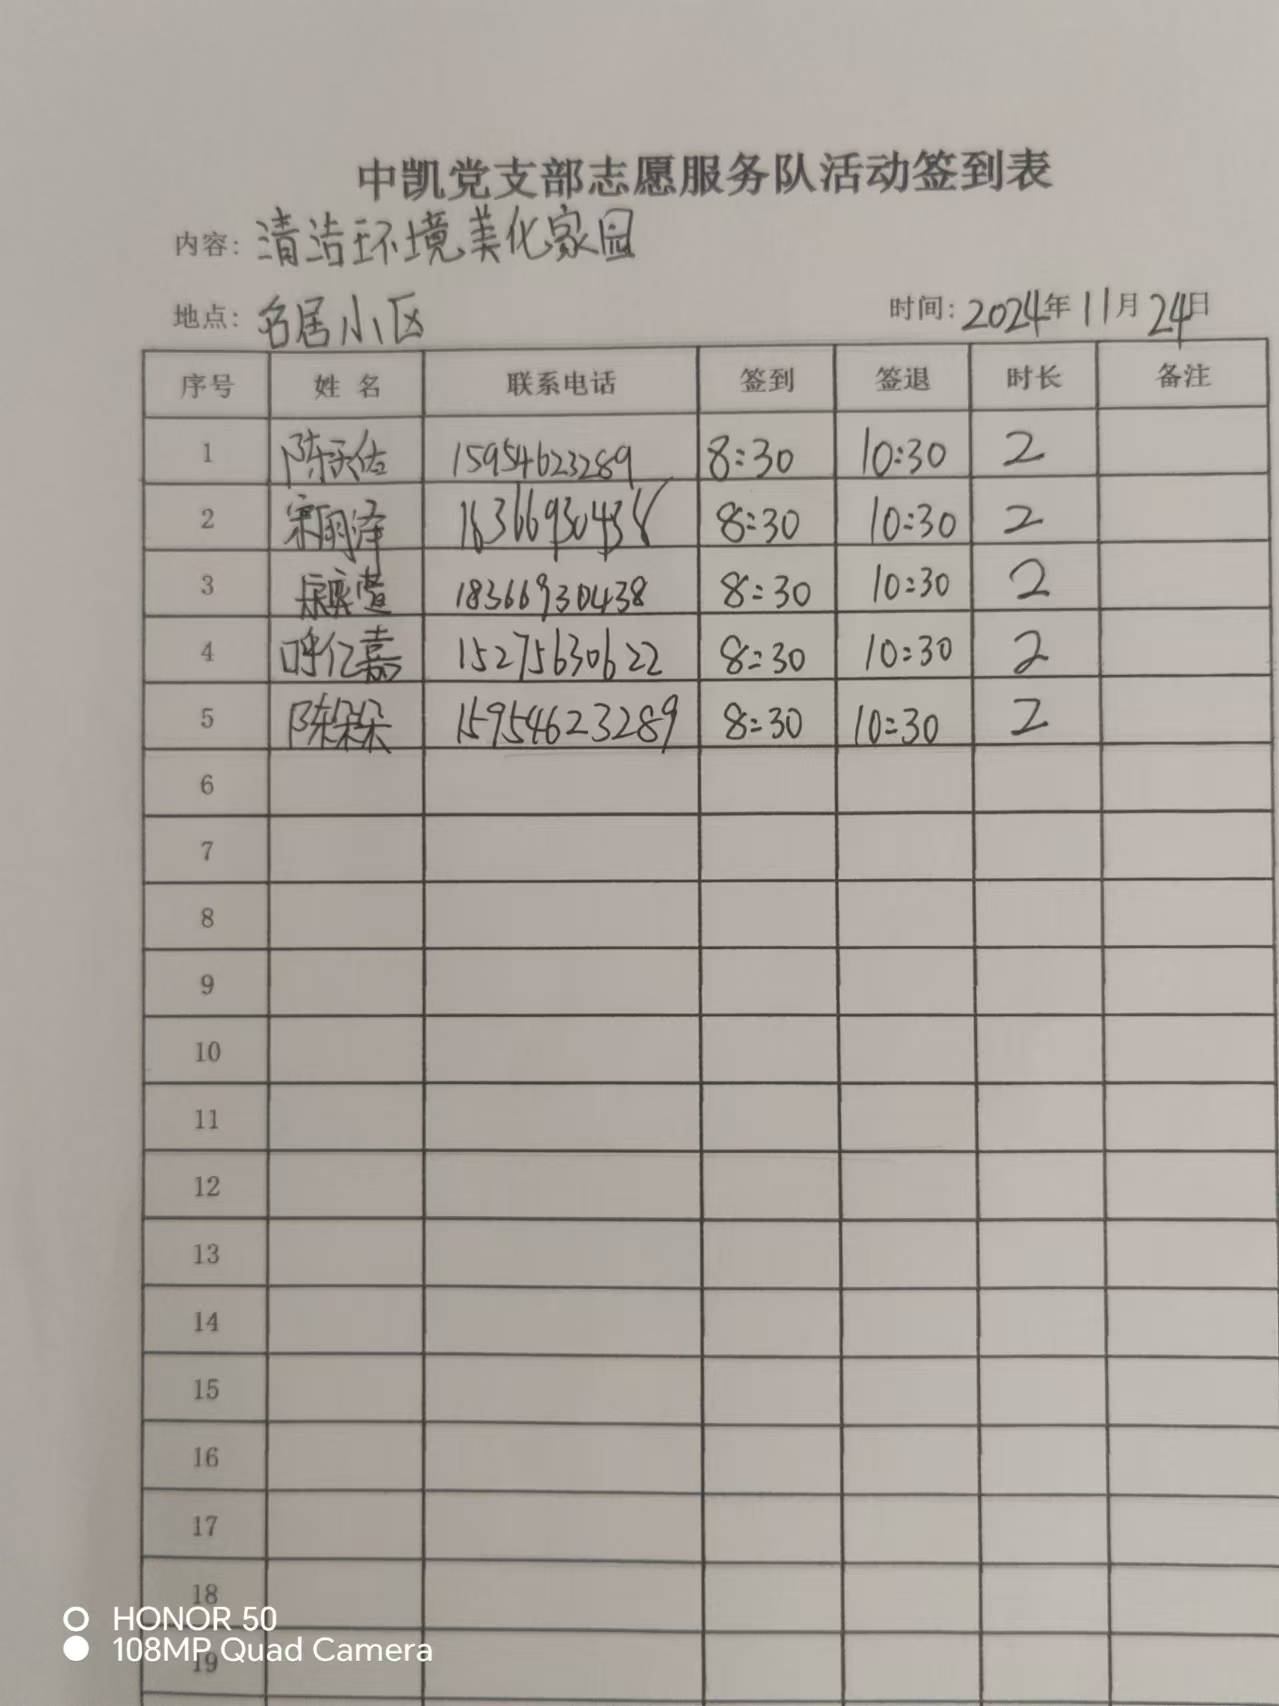 中凯党支部志愿服务队活动签到表
内容：清洁环境美化家园
地点：名居小区 时间：2024年11月24日
序号 姓名 联系电话 签到 签退 时长 备注
1 陈天佑 15954623289 8:30 10:30 2
2 宋雨泽 18366930438 8:30 10:30 2
3 18366930438 8:30 10:30 2
4 呼亿嘉 15275630622 8:30 10:30 2
5 陈朵朵 15954623289 8:30 10:30 2
6
7
8
9
10
11
12
13
14
15
16
17
18
19
HONOR 50
108MP Quad Camera